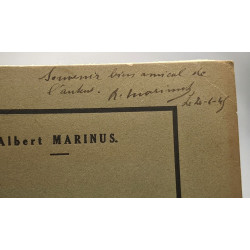 Souvenir bien amical de
l'auteur. A. Marinus
Albert MARINUS.